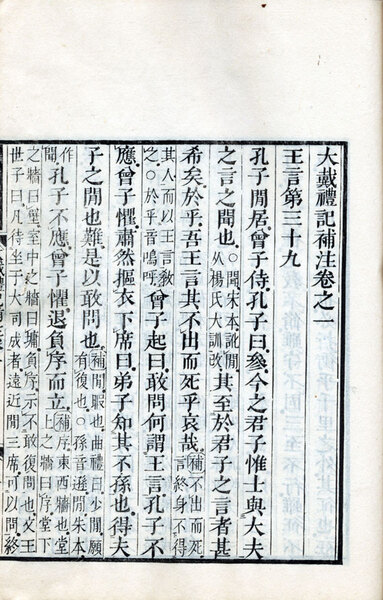 大戴禮記補注卷之一
王言第三十九
孔子閒居曾子侍孔子曰參今之君子惟士與大夫
之言之閒也○閒宋本訛聞从楊氏大訓改其至於君子之言者甚
希矣於乎吾王言其不出而死乎哀哉補不出而死言終身不得
其人而以王言敎之○於乎音嗚呼曾子起曰敢問何謂王言孔子不
應曾子懼肅然摳衣下席曰弟子知其不孫也得夫
子之閒也難是以敢問也補閒暇也曲禮曰少閒願有復也○孫音遜閒朱本
作聞孔子不應曾子懼退負序而立補序東西牆也堂上之牆曰序堂下
之牆曰壁室中之牆曰墉負序示不敢復問也文王
世子曰凡待坐于大司成者遠近閒三席可以問終